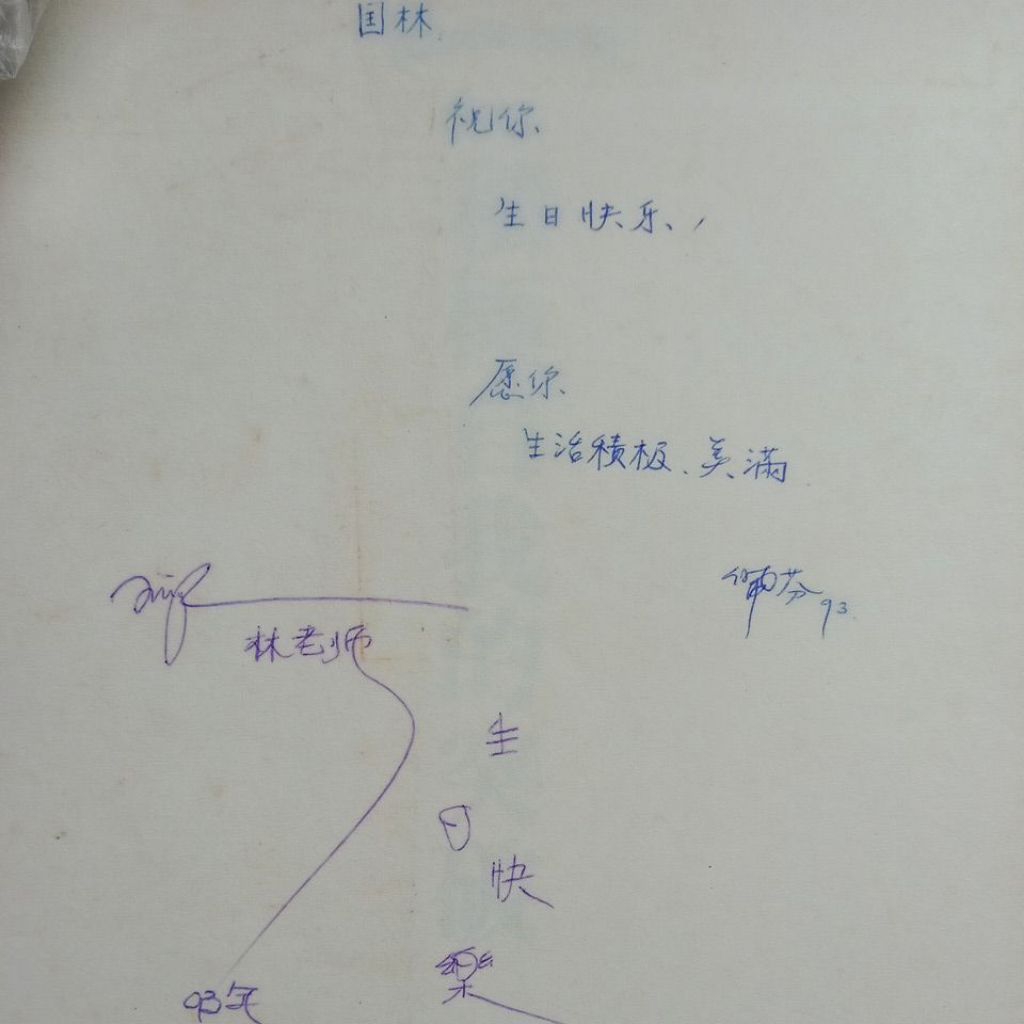 国林
祝你、
生日快乐、
愿你、
生活积极、美满
芬 93.
林老师
生
日
快
樂
93年